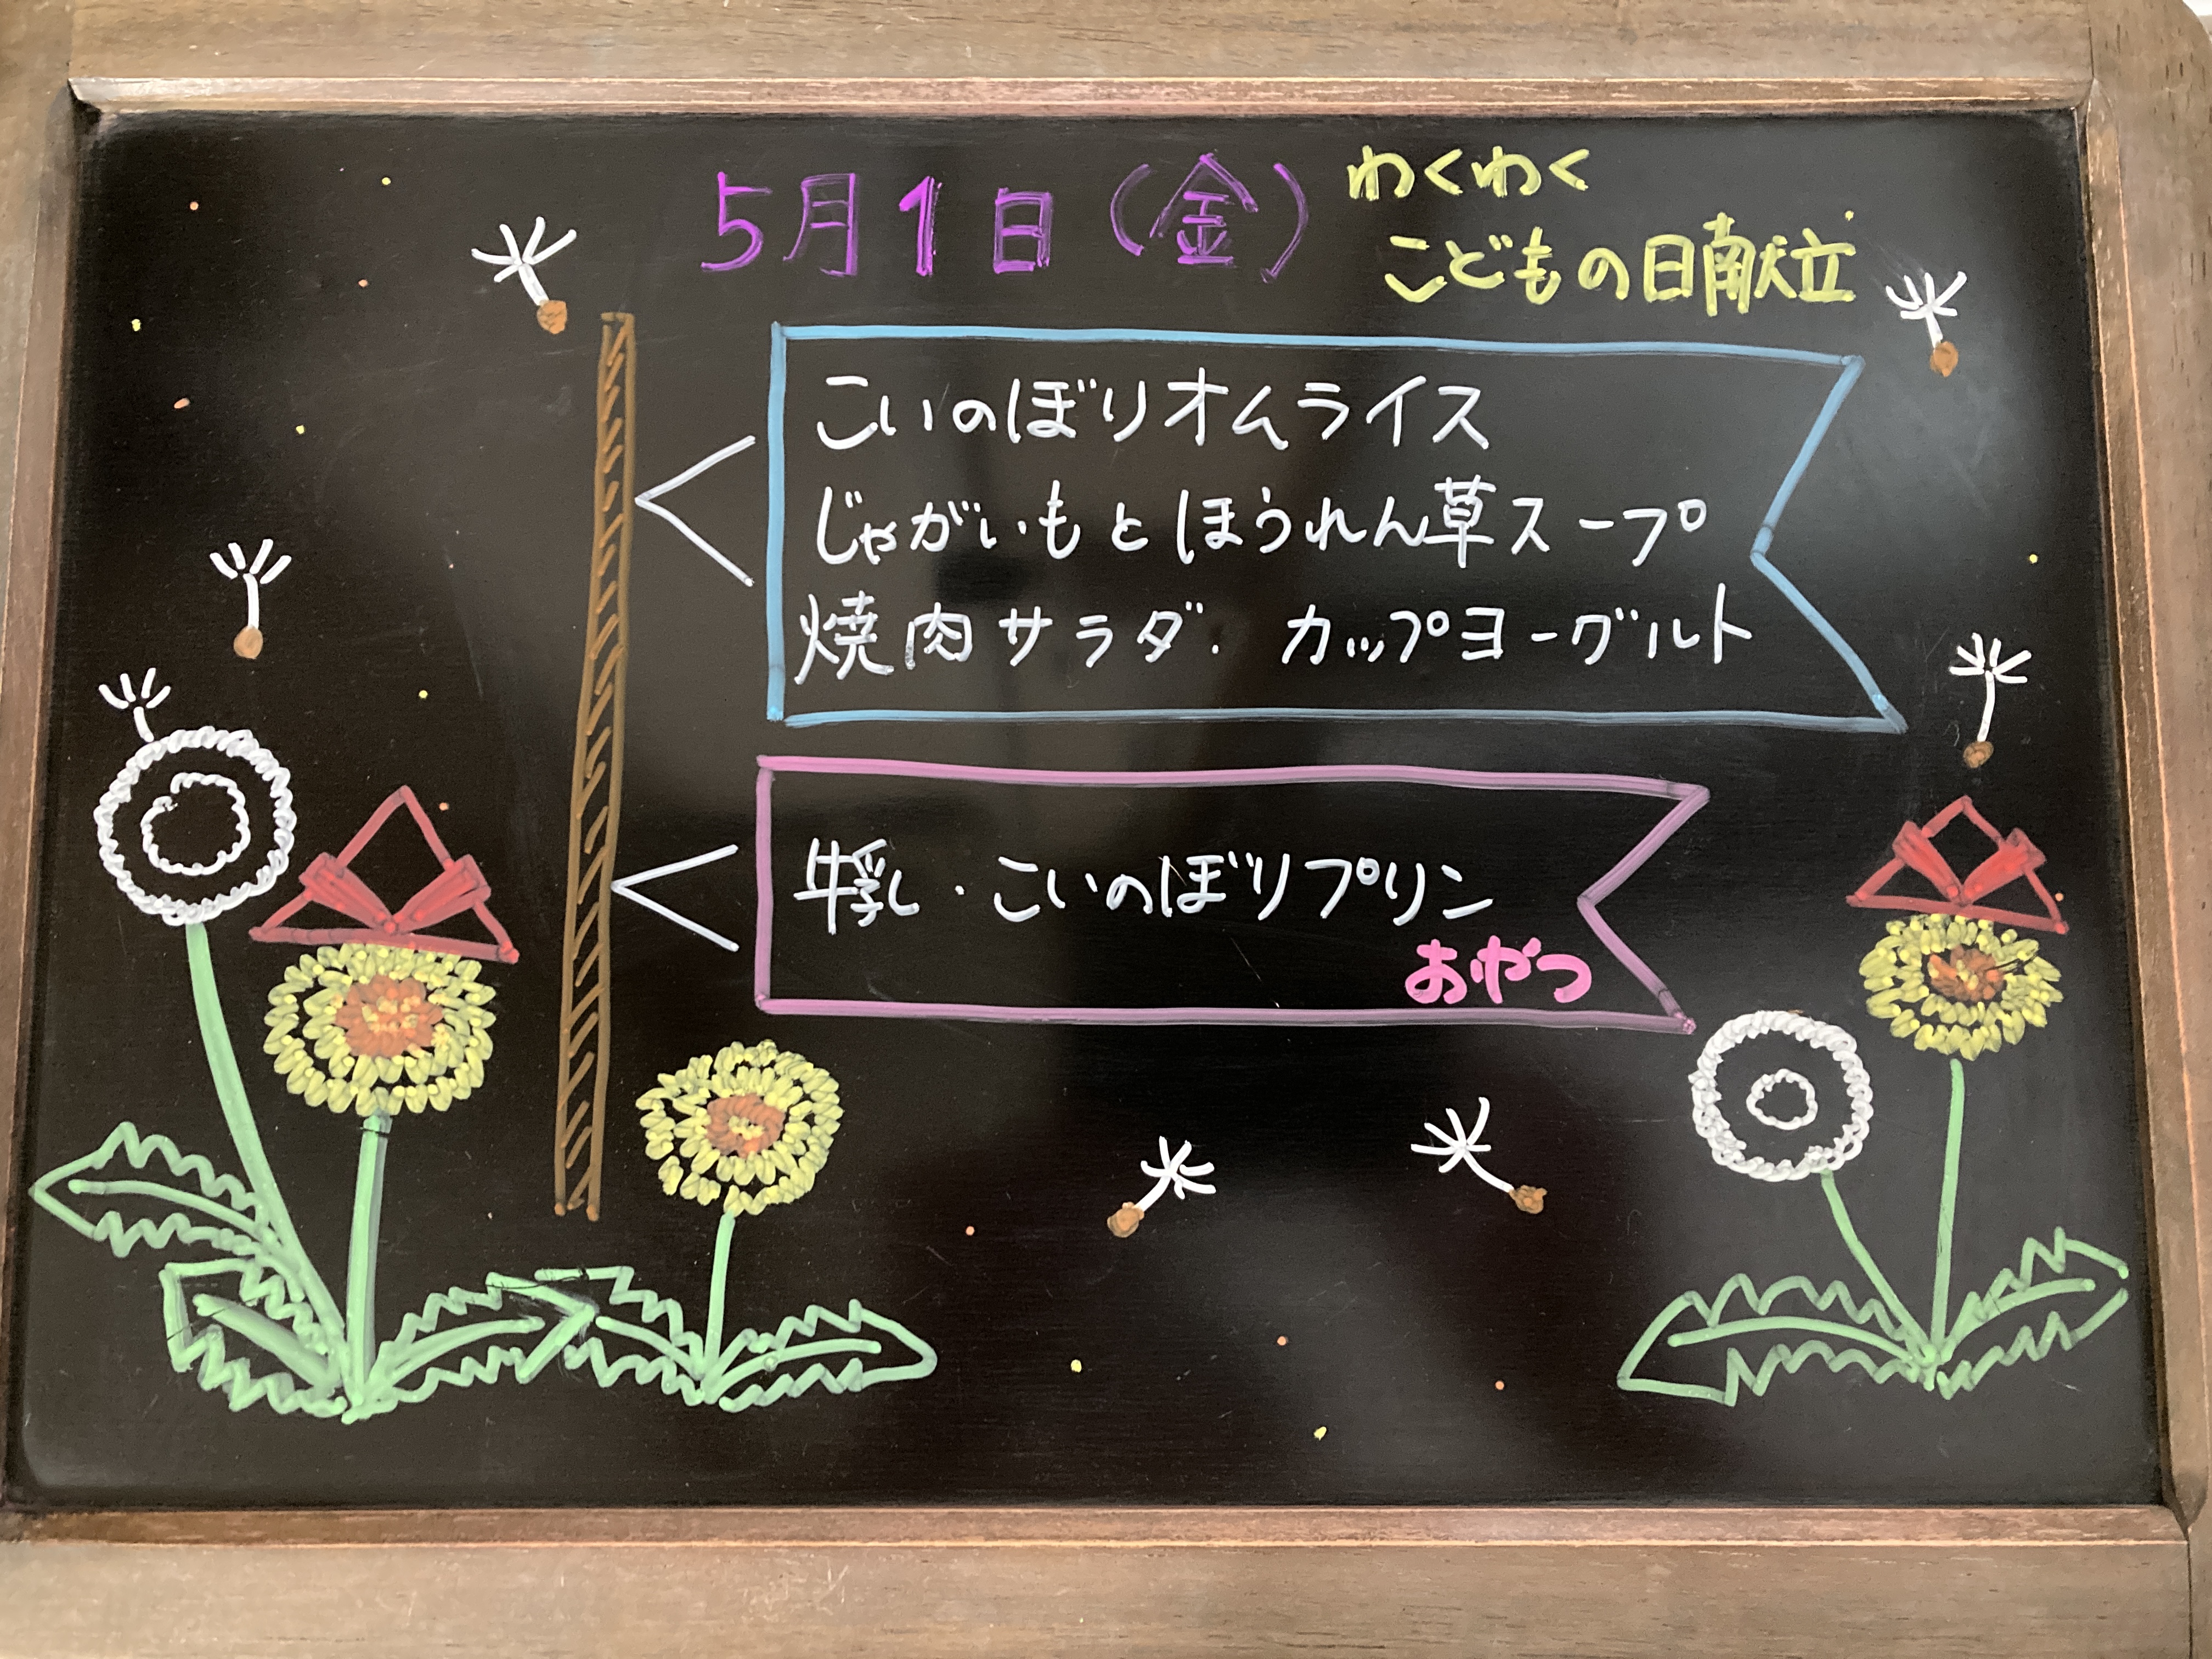 5月1日（金）
わくわく
こどもの日献立
こいのぼりオムライス
じゃがいもとほうれん草スープ
焼肉サラダ・カップヨーグルト
牛乳・こいのぼりプリン
おやつ